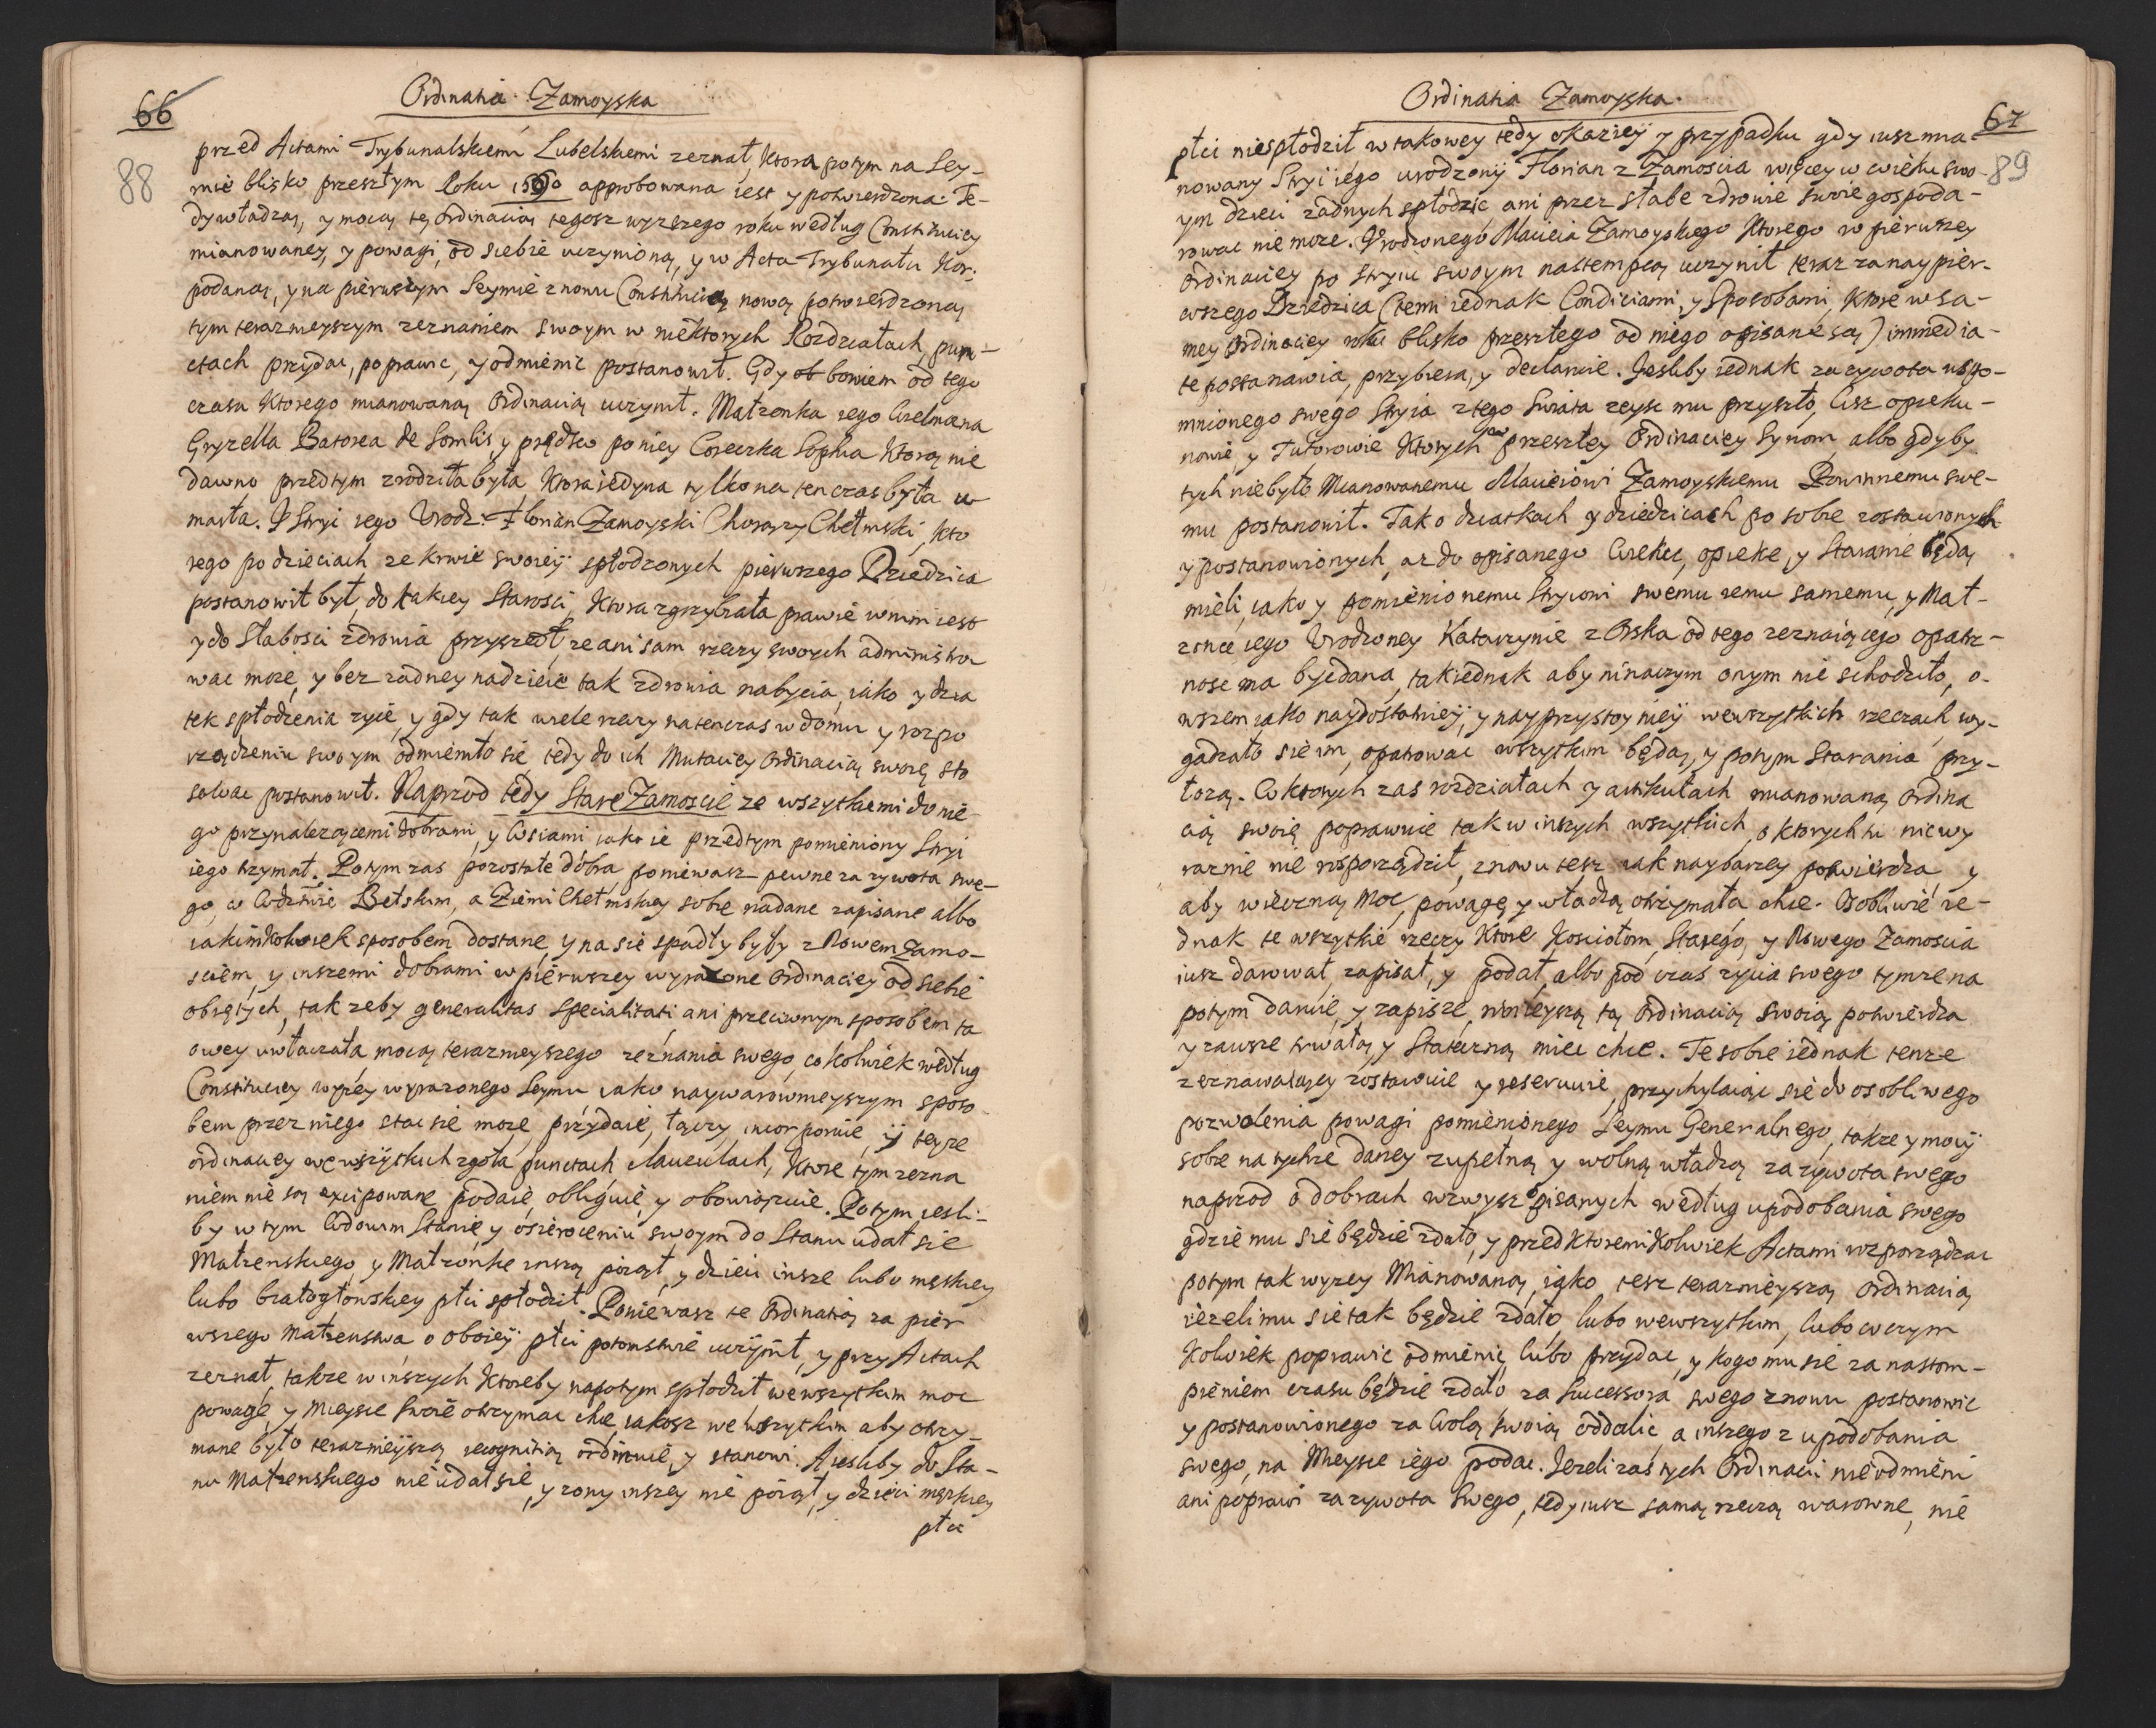 66
88
Ordinatia Zamoyska
przed Actami Trybunalskiemi Lubelskiemi zeznał, Ktora potym na Sey-
mie blisko przeszłym Roku 1590 approbowana iest y potwierdzona: Te-
dy władzą, y mocą tę Ordinacią tegosz wyzszego roku według Constituciey
mianowaney, y powagi, od siebie uczynioną, y w Acta Trybunału Kor:
podaną, y na pierwszym Seymie znowu Constitucią nową potwierdzoną
tym teraznieyszym zeznaniem swoym w niektorych Rozdziałach, pun-
ctach przydac, poprawic, y odmienic postanowił. Gdy bowiem od tego
czasu Ktorego mianowaną Ordinacią uczynił. Małzonka iego Wielmozna
Gryzella Batorea de Somlis, y prędko po niey Coreczka Sophia Ktorą nie
dawno przedtym zrodziła była, Ktora iedyna tylko na ten czas była u
marła. I Stryi iego Urodz: Florian Zamoyski Chorązy Chełmski, Kto
rego po dzieciach ze krwie swoieÿ spłodzonych pierwszego Dziedzica
postanowił był, do takiey Starosci, Ktora zgrzybiała prawie w nim iest
y do Słabosci zdrowia przyszedł, ze ani sam rzeczy swoych administro
wac moze, y bez zadney nadzieie tak zdrowia nabycia, iako y dzia
tek spłodzenia zyie, y gdy tak wiele rzeczy na tenczas w domu y rozpo
rządzeniu swoym odmieniło się tedy do ich Mutaciey Ordinacią swoię sto
sowac postanowił. Naprzod tedy Stare Zamoscie ze wszytkiemi do nie
go przynalezącemi dobrami, y Wsiami iako ie przedtym pomieniony Stryi
iego trzymał. Potym zas pozostałe dobra, poniewasz pewne za zywota swe-
go, w Wdztwie Bełskim, a Ziemi Chełmskiey sobie nadane zapisane albo
iakimkolwiek sposobem dostane, y na się spadły były z Nowem Zamo-
sciem, y inszemi dobrami w pierwszey wyrazone Ordinaciey od siebie
obiętych, tak zeby generalitas specialitati ani przeciwnym sposobem ta
owey uwłaczała, mocą terazniejszego zeznania swego, cokolwiek według
Constituciey wyzey wyrazonego Seymu iako naywarownieyszym sposo
bem przez niego stac się moze, przydaie, łączy, incorporuie, ÿ teyze
ordinaciey we wszytkich zgoła punctach Clauzulach, Ktore tym zezna
niem nie są excipowane podaie, obliguie, y obowięzuie. Potym iesli-
by w tym Wdowim Stanie y osieroceniu swoym do Stanu udał się
Małzenskiego, y Małzonkę inszą poiął, y dzieci insze lubo męskiey
lubo białogłowskiey płci spłodził. Poniewasz te Ordinatią za pier
wszego Małzenstwa, o oboieÿ płci potomstwie uczÿnił, y przy Actach
zeznał, takze w inszych Ktoreby napotym spłodził we wszytkim moc
powagę, y Mieysce swoie otrzymac chce, iakosz we wszytkim aby otrzy-
mane było terazniejszą recognitią ordinuie, y stanowi. A iesliby do Sta-
nu Małzenskiego nie udał się, y zony inszey nie poiął, y dzieci męskiey
płci
Ordinatia Zamoyska.
67
89
płci nie spłodził w takowey tedy okazieÿ y przypadku gdy iusz mia
nowany Stryi iego urodzonÿ Florian z Zamoscia więcey w wieku swo-
ym dzieci zadnych spłodzic ani przez słabe zdrowie swoie gospoda-
rowac nie moze. Urodzonego Macieia Zamoyskiego Ktorego w pierwszey
Ordinaciey po Stryiu swoym nastempcą uczynił teraz za naypier-
wszego Dziedzica (temi iednak Condiciami, y Sposobami, Ktore w sa-
mey Ordinaciey roku blisko przeszłego od niego opisane są) immedia-
te postanawia, przybiera, y declaruie. Jesliby iednak za zywota wspo-
mnionego swego Stryia z tego Swiata zeysc mu przyszło, tesz opieku-
nowie y Tutorowie Ktorych w przeszłey Ordinaciey Synom, albo gdyby
tych nie było Mianowanemu Macieiowi Zamoyskiemu Powinnemu swe-
mu postanowił. Tak o dziatkach y dziedzicach po sobie zostawionych
y postanowionych, az do opisanego Wieku, opiekę, y Staranie będą
mieli, iako y pomienionemu Stryiowi swemu temu samemu, y Mał-
zonce iego Urodzoney Katarzynie z Orska od tego zeznaiącego opatrz-
nosc ma byc dana, tak iednak aby ni na czym onym nie schodziło, o-
wszem iako naydostatnieÿ, y nayprzystoynieÿ we wszytkich rzeczach, wy-
gadzało się im, opatrowac wszytkim będą, y potym Starania przy-
łozą. W ktorych zas rozdziałach y artikułach mianowaną Ordina
cią swoię poprawuie tak w inszych wszytkich, o ktorych tu niewy
raznie nie rosporządził, znowu tesz iak naybarzey potwierdza y
aby wieczną Moc, powagę, y władzą otrzymała chce. Osobliwie ie-
dnak te wszytkie rzeczy Ktore Kosciołom, Starego, y Nowego Zamoscia
iusz darował, zapisał, y podał, albo pod czas zycia swego tymze na
potym daruie, y zapisze, ninieyszą tą Ordinacią swoią potwierdza
y zawsze trwałą, y Stateczną miec chce. Te sobie iednak tenze
zeznawaiący zostawuie y reservuie, przychylaiąc się do osobliwego
pozwolenia powagi pomienionego Seymu Generalnego, takze y mocÿ
sobie na tychze daney zupełną y wolną władzą za zywota swego
naprzod o dobrach wzwysz opisanych według upodobania swego
gdzie mu się będzie zdało, y przed Ktoremi Kolwiek Actami rozporządzac
potym tak wyzey Mianowaną, iako tesz terazniejszą Ordinacią
iezeli mu się tak będzie zdało, lubo we wszytkim, lubo w czym
Kolwiek poprawic odmienic, lubo przydac, y kogo mu się za nastom-
pieniem czasu będzie zdało za Successora swego znowu postanowic
y postanowionego za Wolą swoią oddalic, a inszego z upodobania
swego, na Mieysce iego podac. Jezeli zas tych Ordinacii nie odmieni
ani poprawi za zywota Swego, tedy iusz samą rzeczą warowne, nie